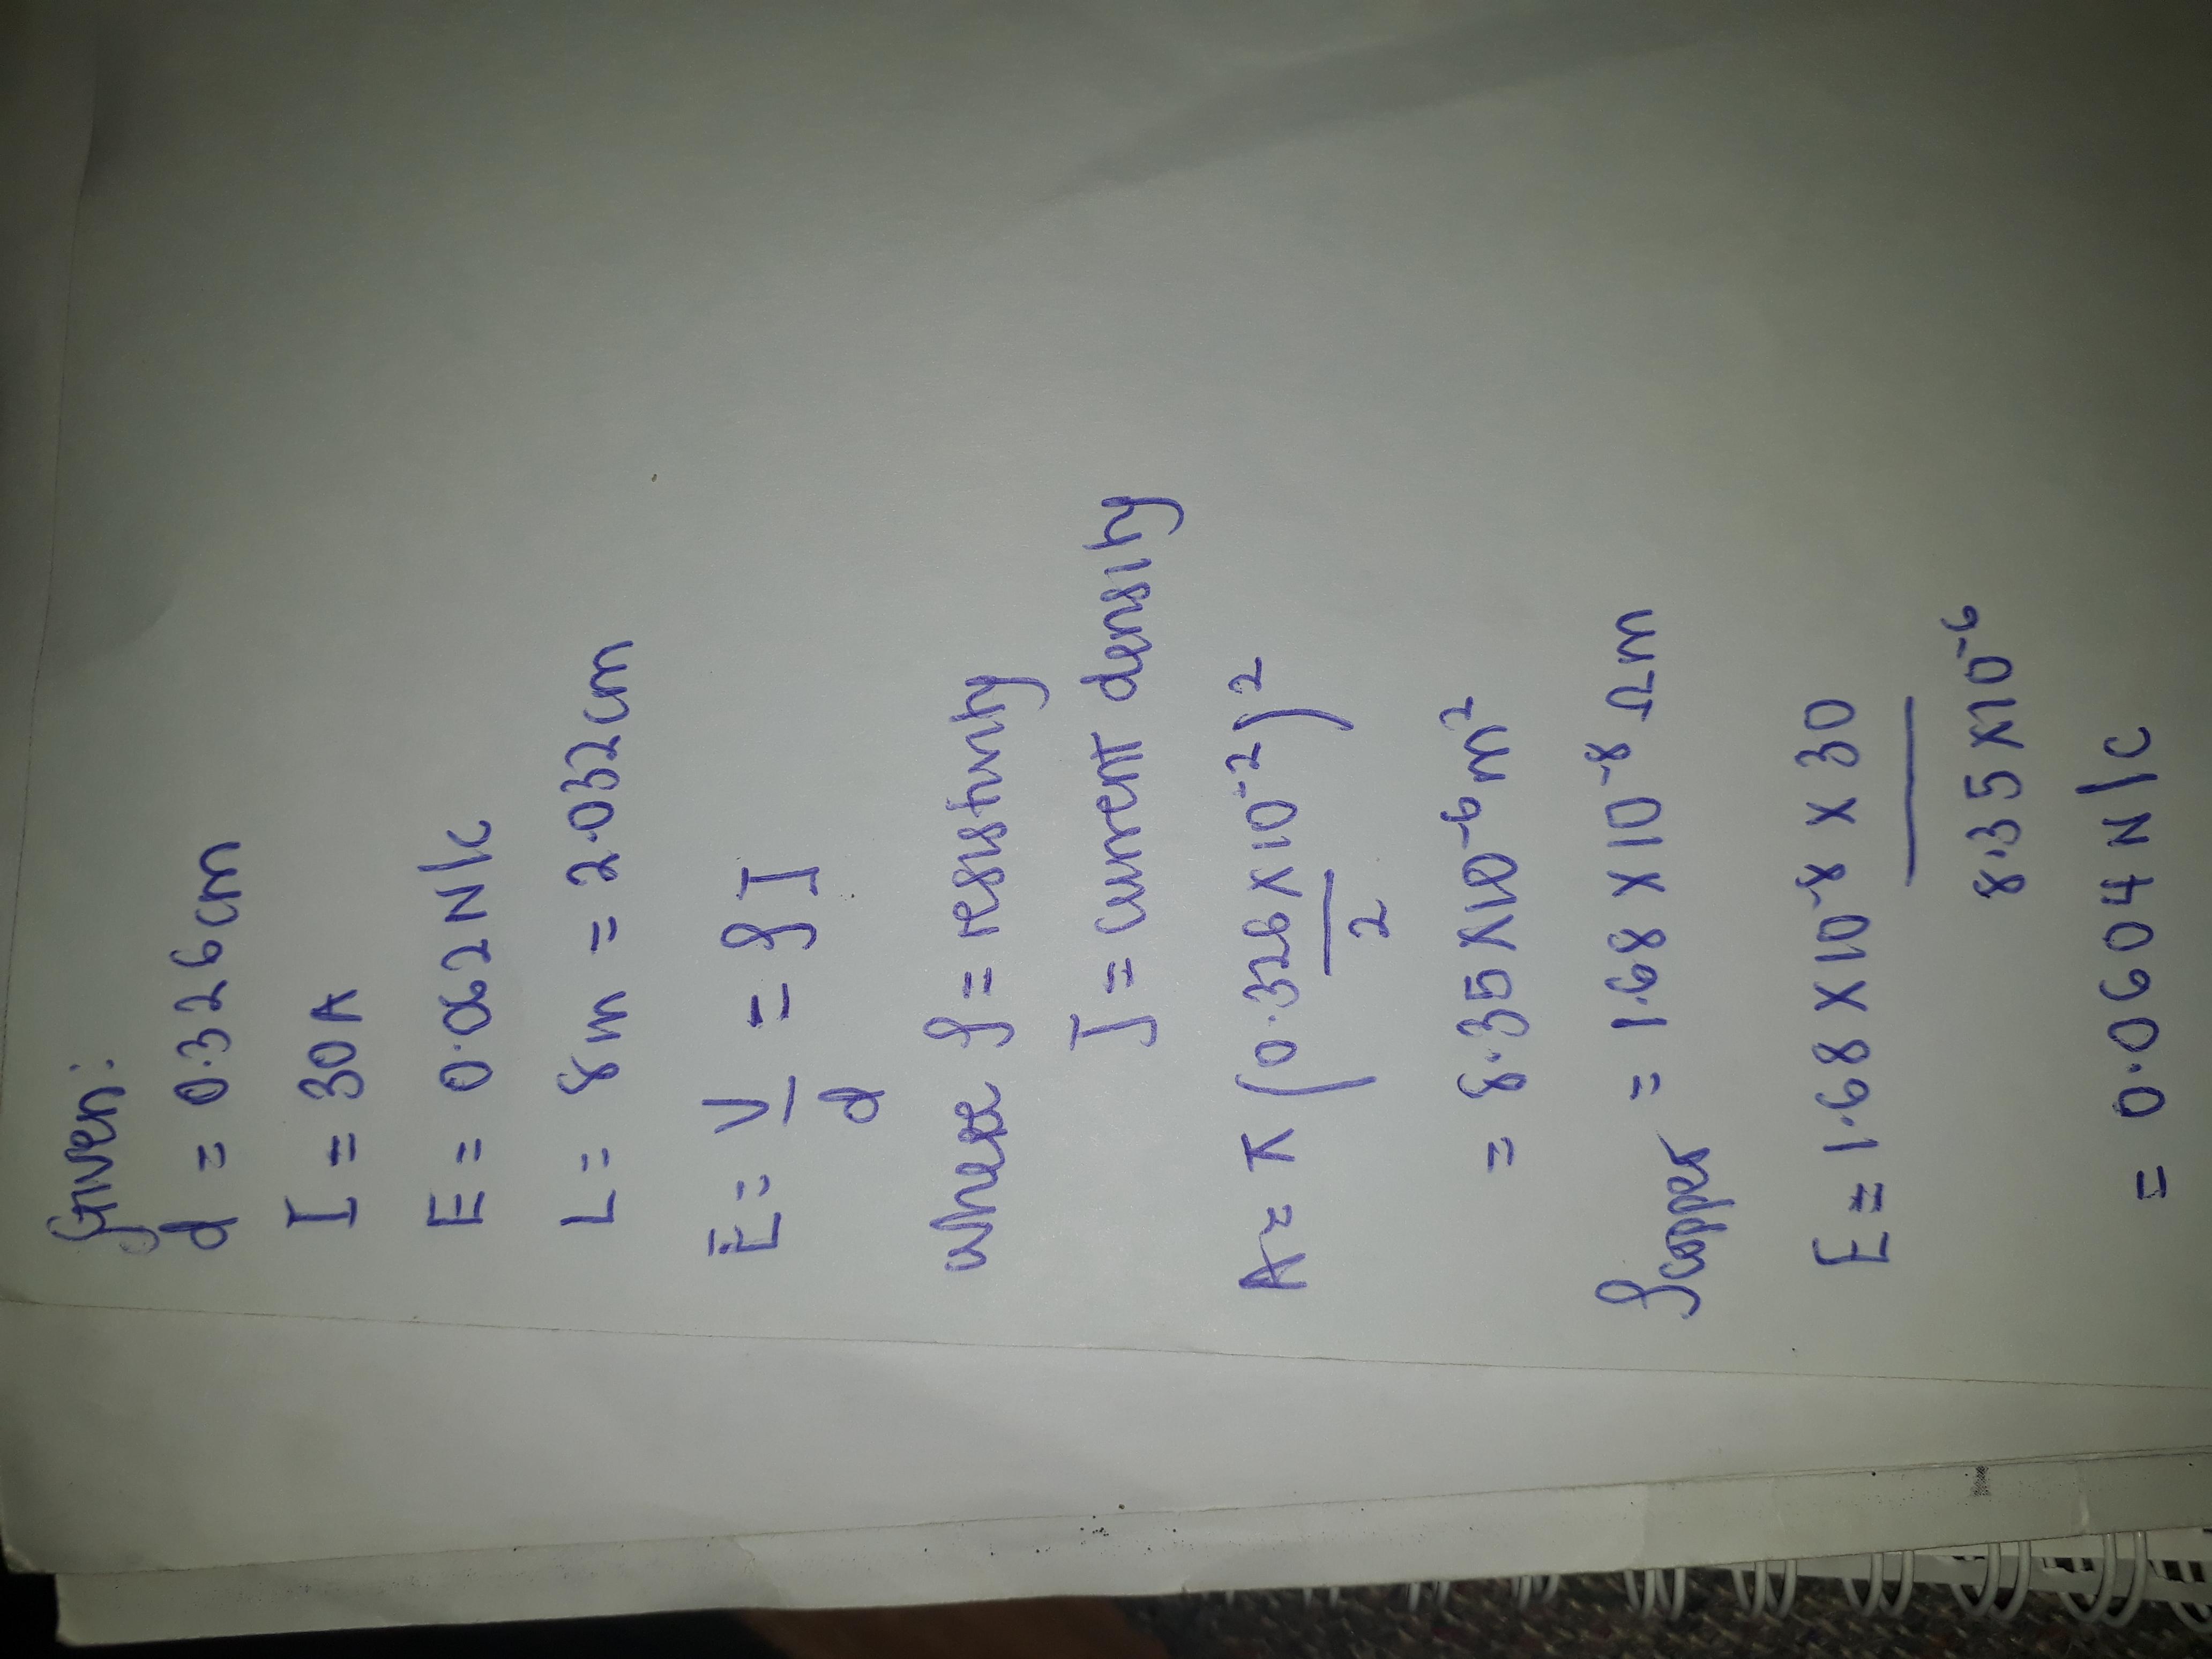 Given:
d = 0.326cm
I = 30A
E = 0.062N/C
L = 8m = 2.032cm
E = V/d = ρJ
where ρ = resistivity
J = current density
A = π (0.326 x 10⁻²/2)²
= 8.35 x 10⁻⁶ m²
ρcopper = 1.68 x 10⁻⁸ Ωm
E = 1.68 x 10⁻⁸ x 30
8.35 x 10⁻⁶
= 0.0604 N/C